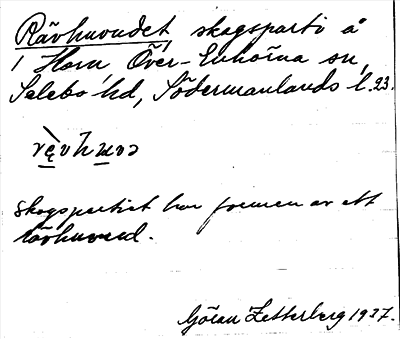 Rävhuvudet, skogsparti å
/ Horn Över-Enhörna sn,
Selebo hd, Södermanlands l. 23.
rę̀vhuvə
Skogspartiet har formen av ett
rävhuvud.
Göran Zetterberg 1927.